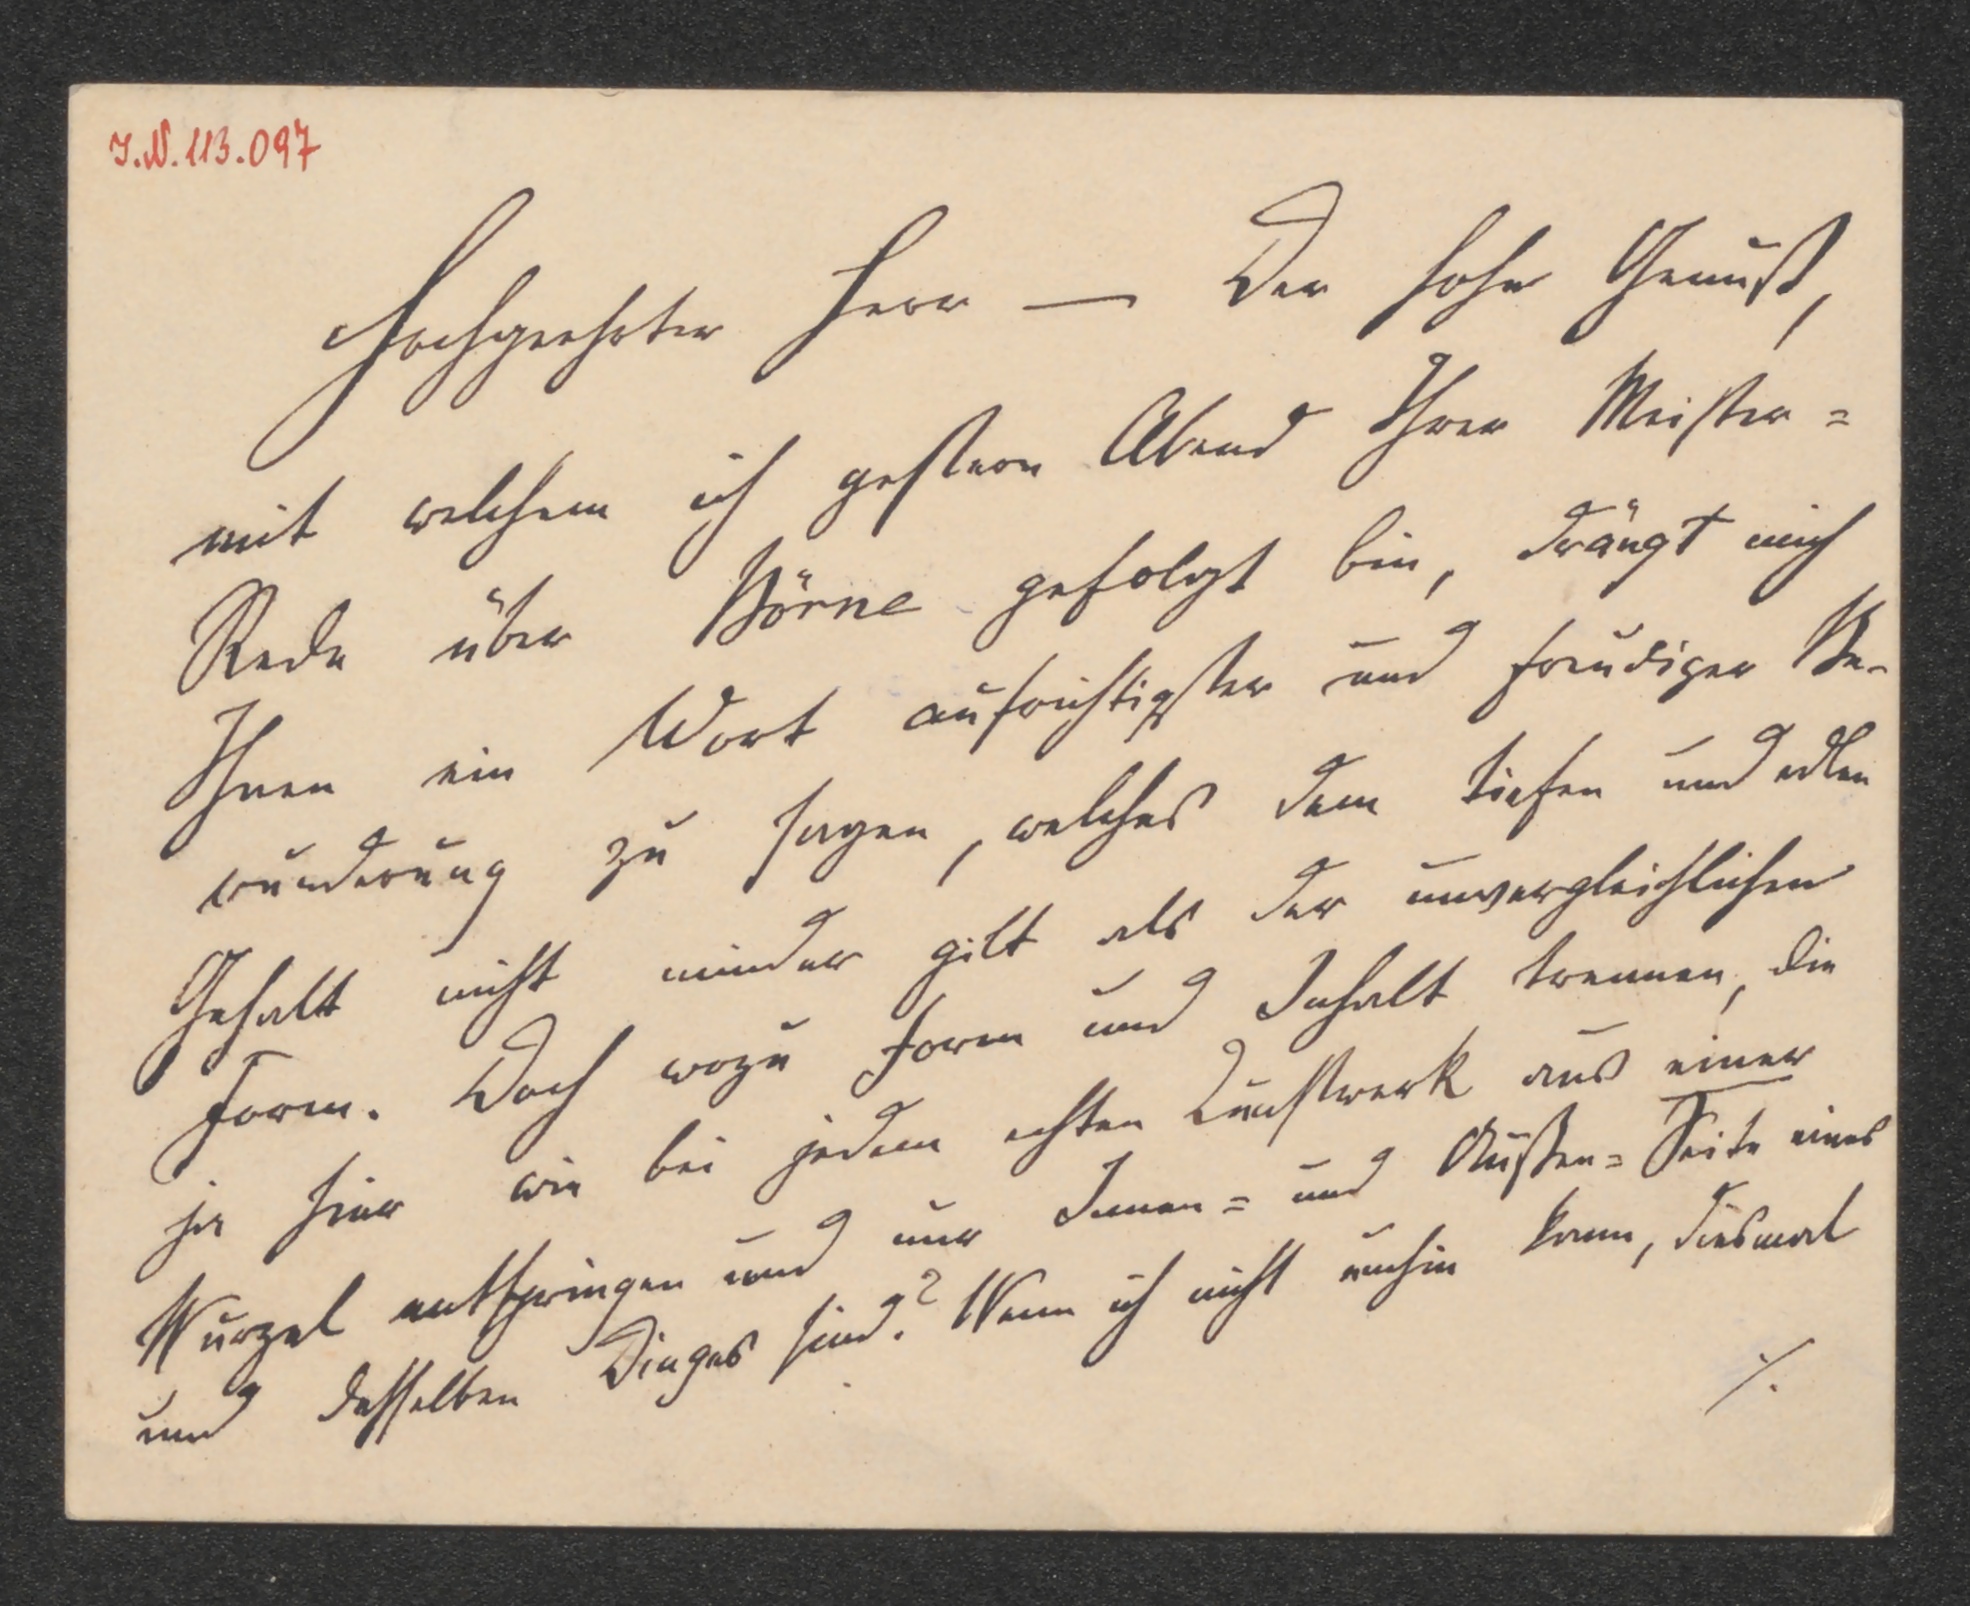 I.N. 113.097
Hochgeehrter Herr — Der hohe Genuß,
mit welchem ich gestern Abend Ihrer Meister=
Rede über Börne gefolgt bin, drängt mich
Ihnen ein Wort aufrichtigster und freudiger Be-
wunderung zu sagen, welches dem tiefen und edlen
Gehalt nicht minder gilt als der unvergleichlichen
Form. Doch wozu Form und Inhalt trennen, die
ja hier wie bei jedem echten Kunstwerk aus einer
Wurzel entspringen und nur Innen= und Außen=Seite eines
und desselben Dinges sind? Wenn ich nicht umhin kann, diesmal
./.